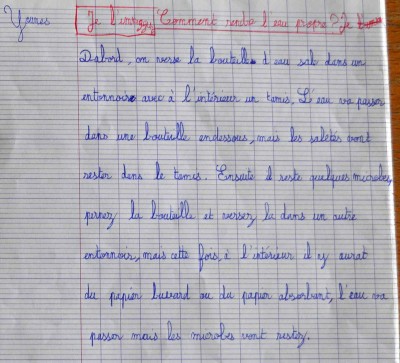 Younes
Je l'investigue Comment rendre l'eau propre ? Je
D'abord, on verse la bouteille d'eau sale dans un
entonnoire avec à l'intérieur un tamis. L'eau va passer
dans une bouteille endessous, mais les saletés vont
rester dans le tamis. Ensuite il reste quelques microbes,
penez la bouteille et versez la dans un autre
entonnoir, mais cette fois, à l'intérieur il ey aurat
du papier buvard ou du papier absorbent, l'eau va
passer mais les microbes vont restez.